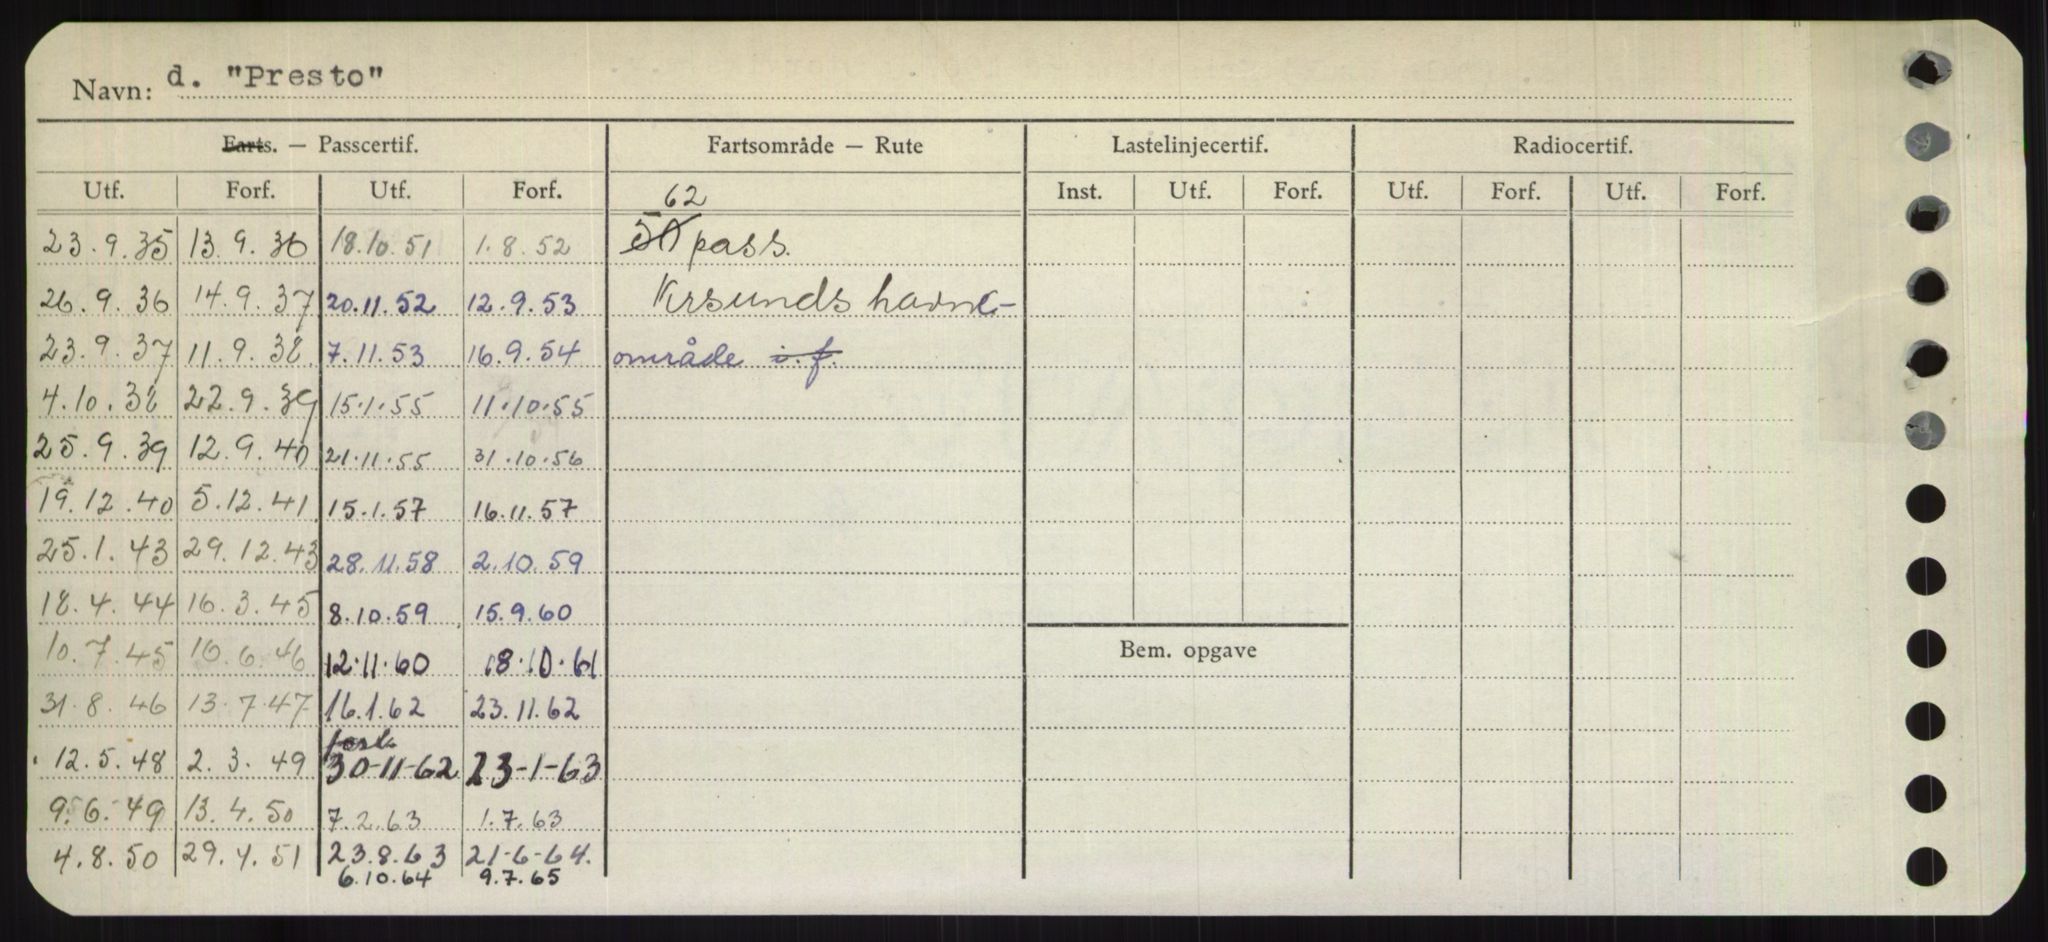 Navn: d. "Presto"
Farts. — Passcertif. Fartsområde — Rute Lastelinjecertif. Radiocertif.
Utf. Forf. Utf. Forf. 62 Inst. Utf. Forf. Utf. Forf. Utf. Forf.
23.9.35 13.9.36 18.10.51 1.8.52 50 pass.
26.9.36 14.9.37 20.11.52 12.9.53 Krsunds havne-
23.9.37 11.9.38 7.11.53 16.9.54 område i.f.
4.10.38 22.9.39 15.1.55 11.10.55
25.9.39 12.9.40 21.11.55 31.10.56
19.12.40 5.12.41 15.1.57 16.11.57
25.1.43 29.12.43 28.11.58 2.10.59
18.4.44 16.3.45 8.10.59 15.9.60
10.7.45 10.6.46 12.11.60 18.10.61 Bem. opgave
31.8.46 13.7.47 16.1.62 23.11.62
forl.
12.5.48 2.3.49 30-11-62 23-1-63
9.6.49 13.4.50 7.2.63 1.7.63
4.8.50 29.4.51 23.8.63 21-6-64.
6.10.64 9.7.65